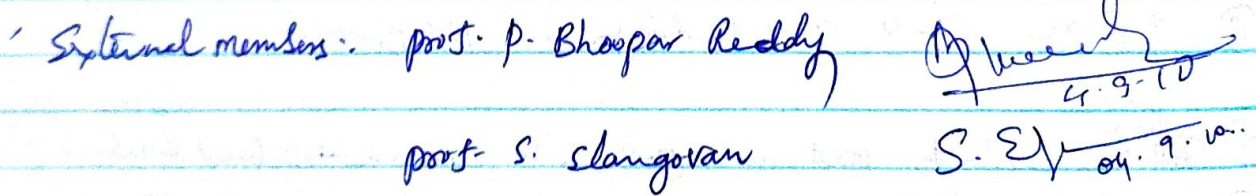 External members:. prof. P. Bhoopar Reddy 4.9.10
prof. S. Elangovan S. El 04.9.10.